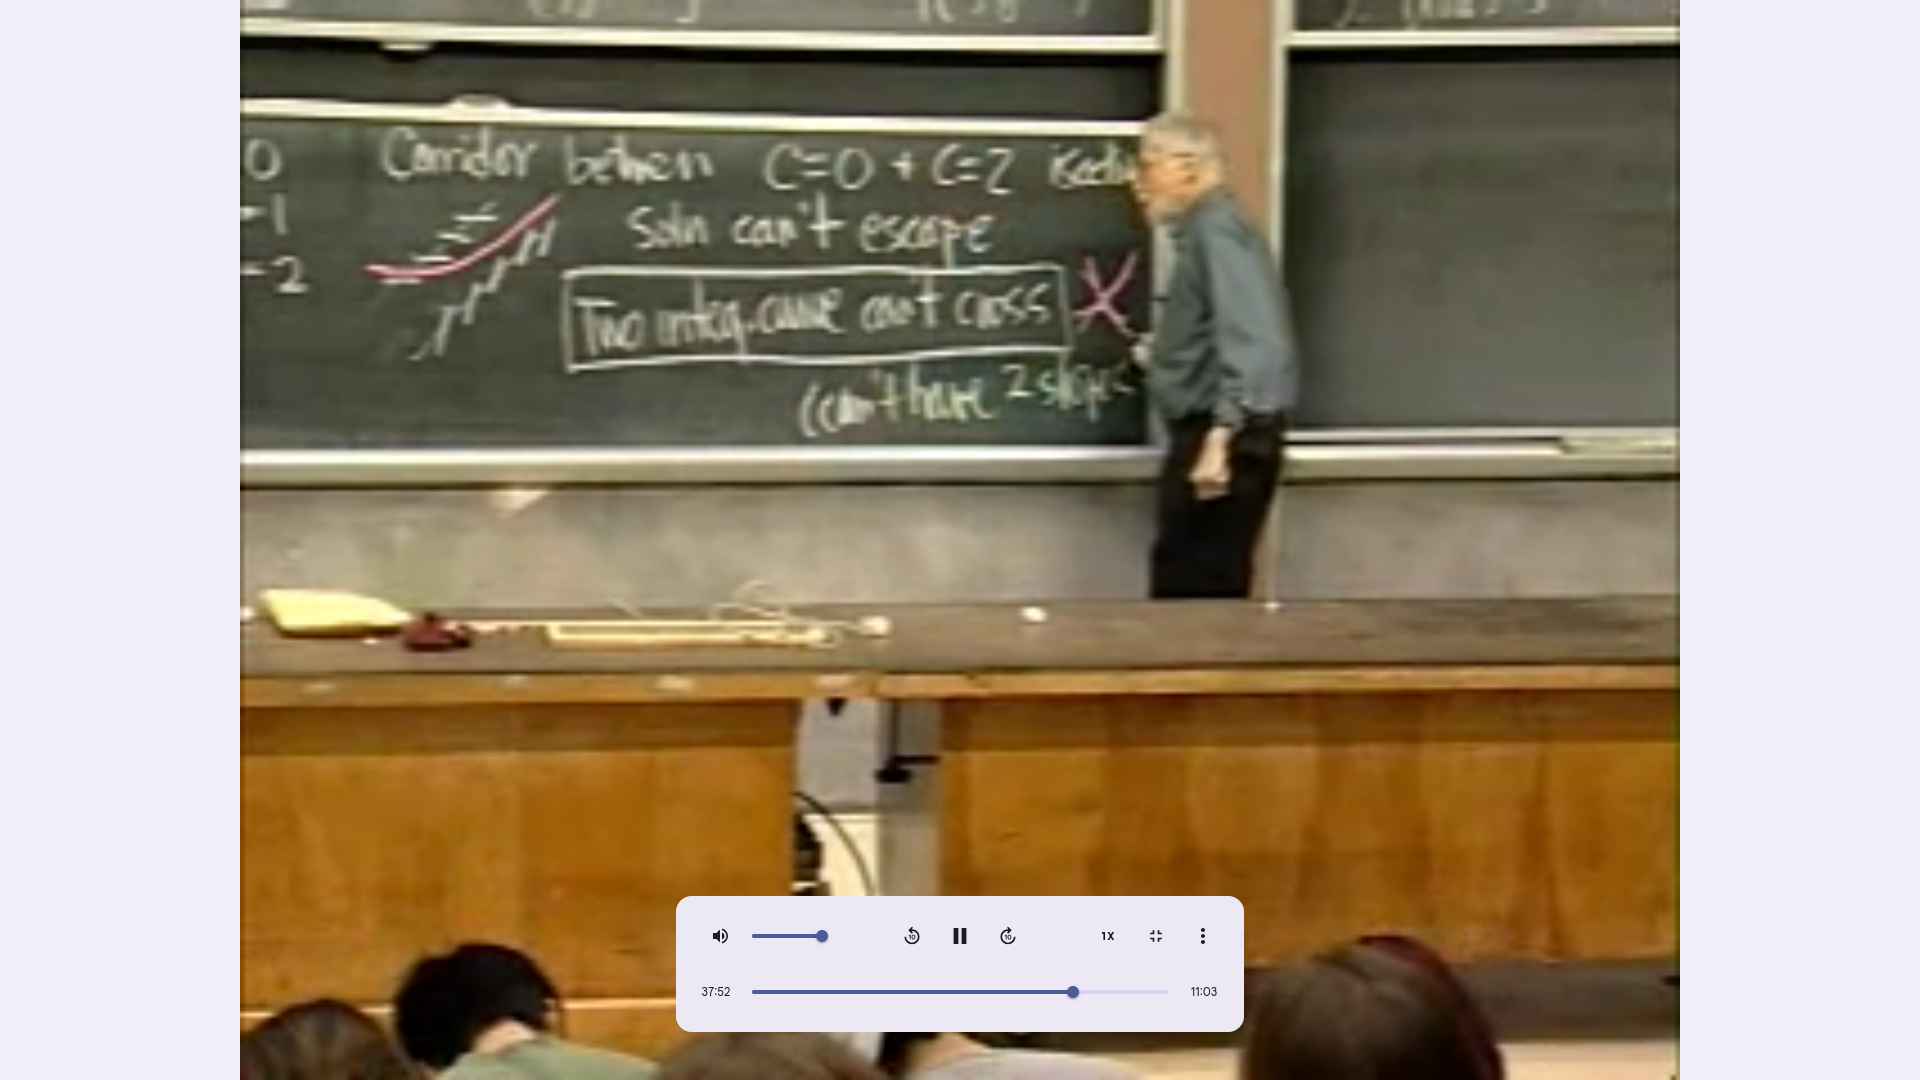 0
-1
-2
Corridor between C=0 + C=2
Soln can't escape
Two integ. curve can't cross
(can't have 2 slopes
1X
10
10
37:52
11:03